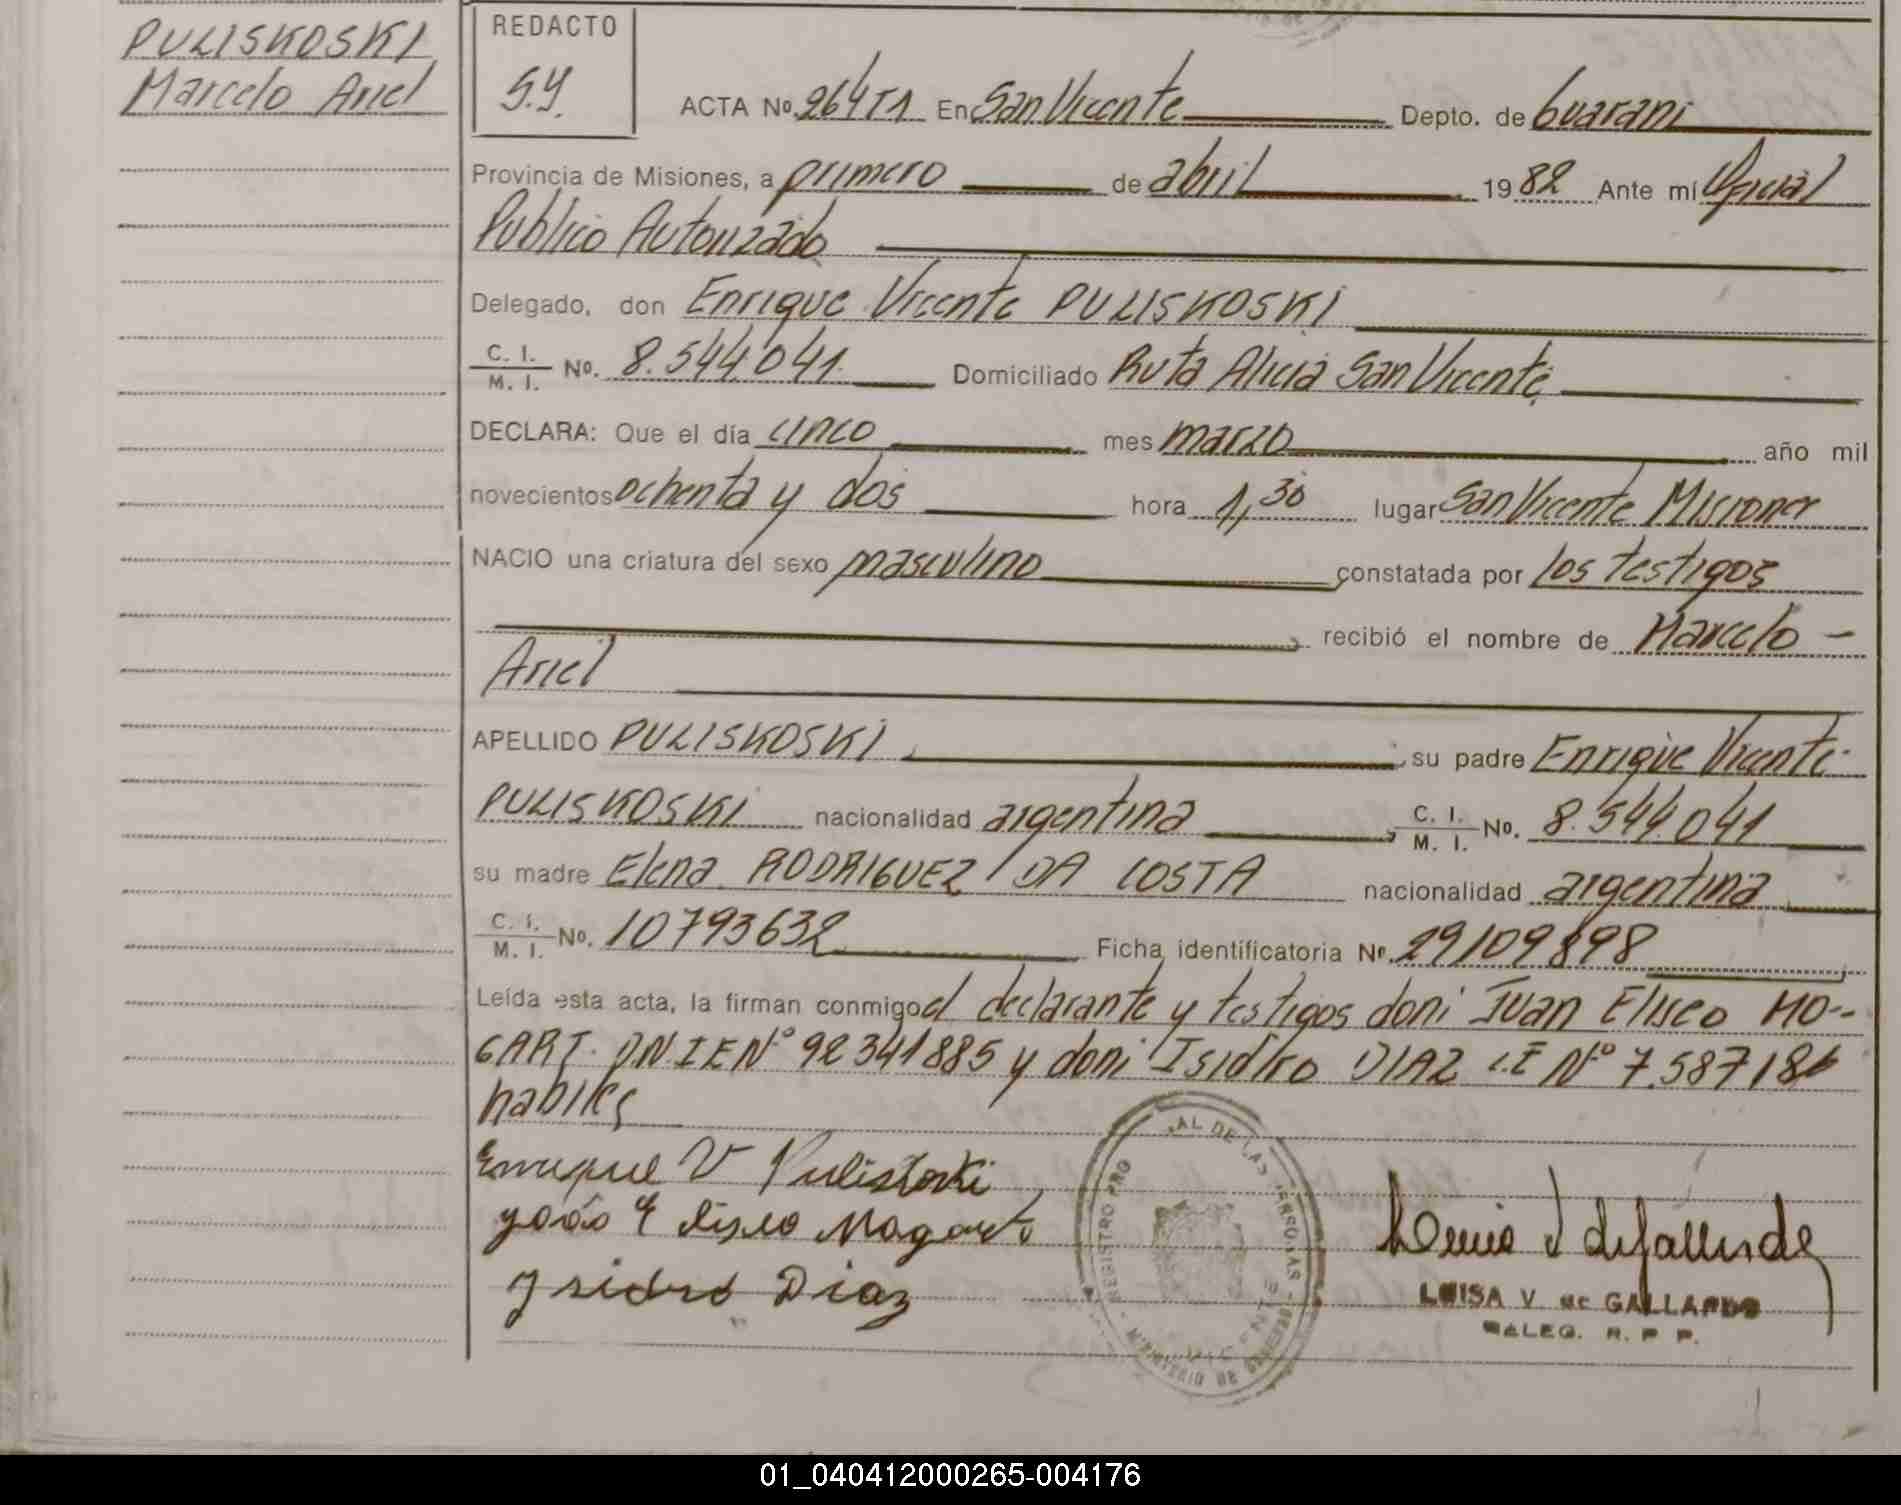 PULISKOSKI
Marcelo Ariel
REDACTO
S.Y.
ACTA Nº 264T1 En San Vicente Depto. de Guarani
Provincia de Misiones, a primero de abril 1982 Ante mí Oficial
Publico Autorizado
Delegado, don Enrique Vicente PULISKOSKI
C. I. / M. I. Nº. 8.544.041. Domiciliado Ruta Alicia San Vicente
DECLARA: Que el día cinco mes marzo año mil
novecientos ochenta y dos hora 1,30 lugar San Vicente Misiones
NACIO una criatura del sexo masculino constatada por los testigos
recibió el nombre de Marcelo -
Ariel
APELLIDO PULISKOSKI su padre Enrique Vicente
PULISKOSKI nacionalidad argentina C. I. / M. I. Nº. 8.544.041
su madre Elena RODRIGUEZ DA COSTA nacionalidad argentina
C. I. / M. I. Nº. 10793632 Ficha identificatoria Nº. 29109898
Leída esta acta, la firman conmigo el declarante y testigos don: Juan Eliseo MO--
GART. D.N.I.E Nº 92341885 y don: Isidro DIAZ L.E Nº 7.587186
habiles
Enrique V Puliskoski
João Eliseo Mogart
Isidro Diaz
REGISTRO PRO AL DE LAS PERSONAS
LUISA V. de GALLARDO
DELEG. R. P. P.
01_040412000265-004176